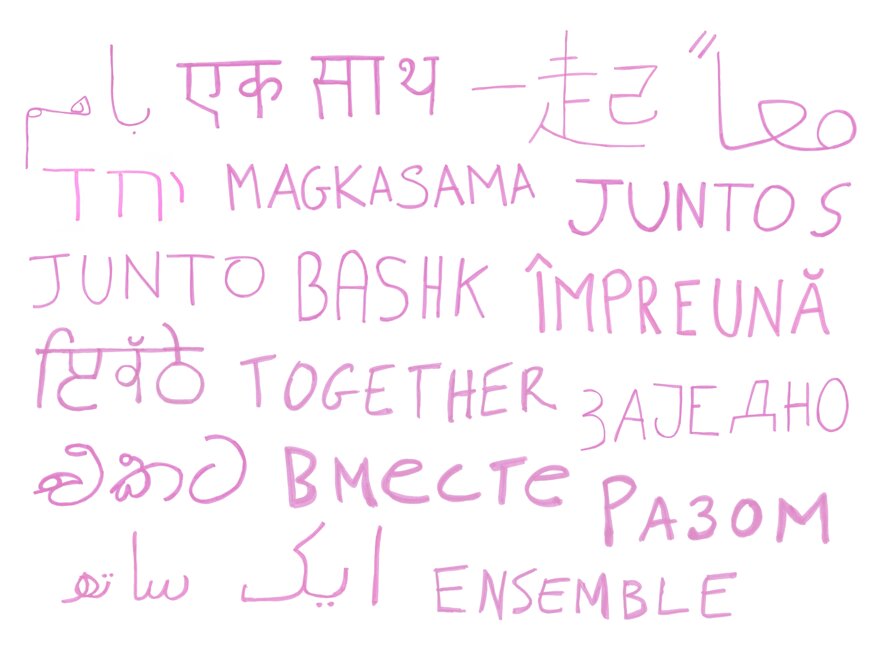 با هم एक साथ 一起 معاً
יחד MAGKASAMA JUNTOS
JUNTO BASHK ÎMPREUNĂ
ਇਕੱਠੇ TOGETHER ЗАЈЕДНО
එකට Вместе РАЗОМ
ایک ساتھ ENSEMBLE